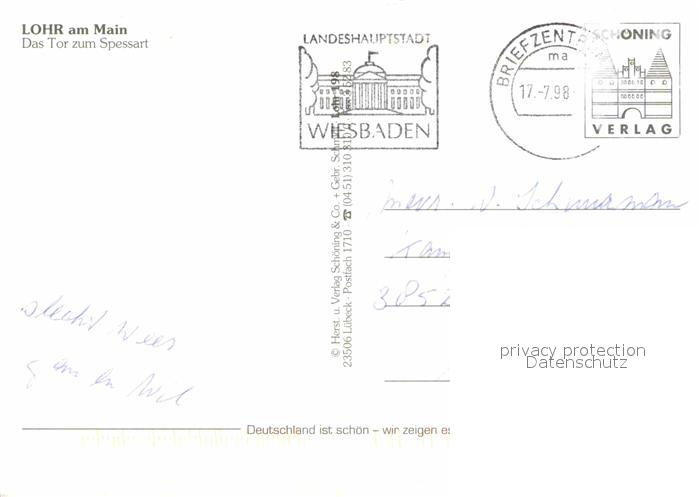 LOHR am Main
Das Tor zum Spessart
LANDESHAUPTSTADT
WIESBADEN
BRIEFZENT
ma
17.-7.98
SCHÖNING
VERLAG
© Herst. u. Verlag Schöning & Co. + Gebr. Schmidt Lohr 198
23506 Lübeck · Postfach 1710 · ☎ (04 51) 310 31
N. Schuurman
Kam
3852
slecht weer
Wil
privacy protection
Datenschutz
Deutschland ist schön – wir zeigen es